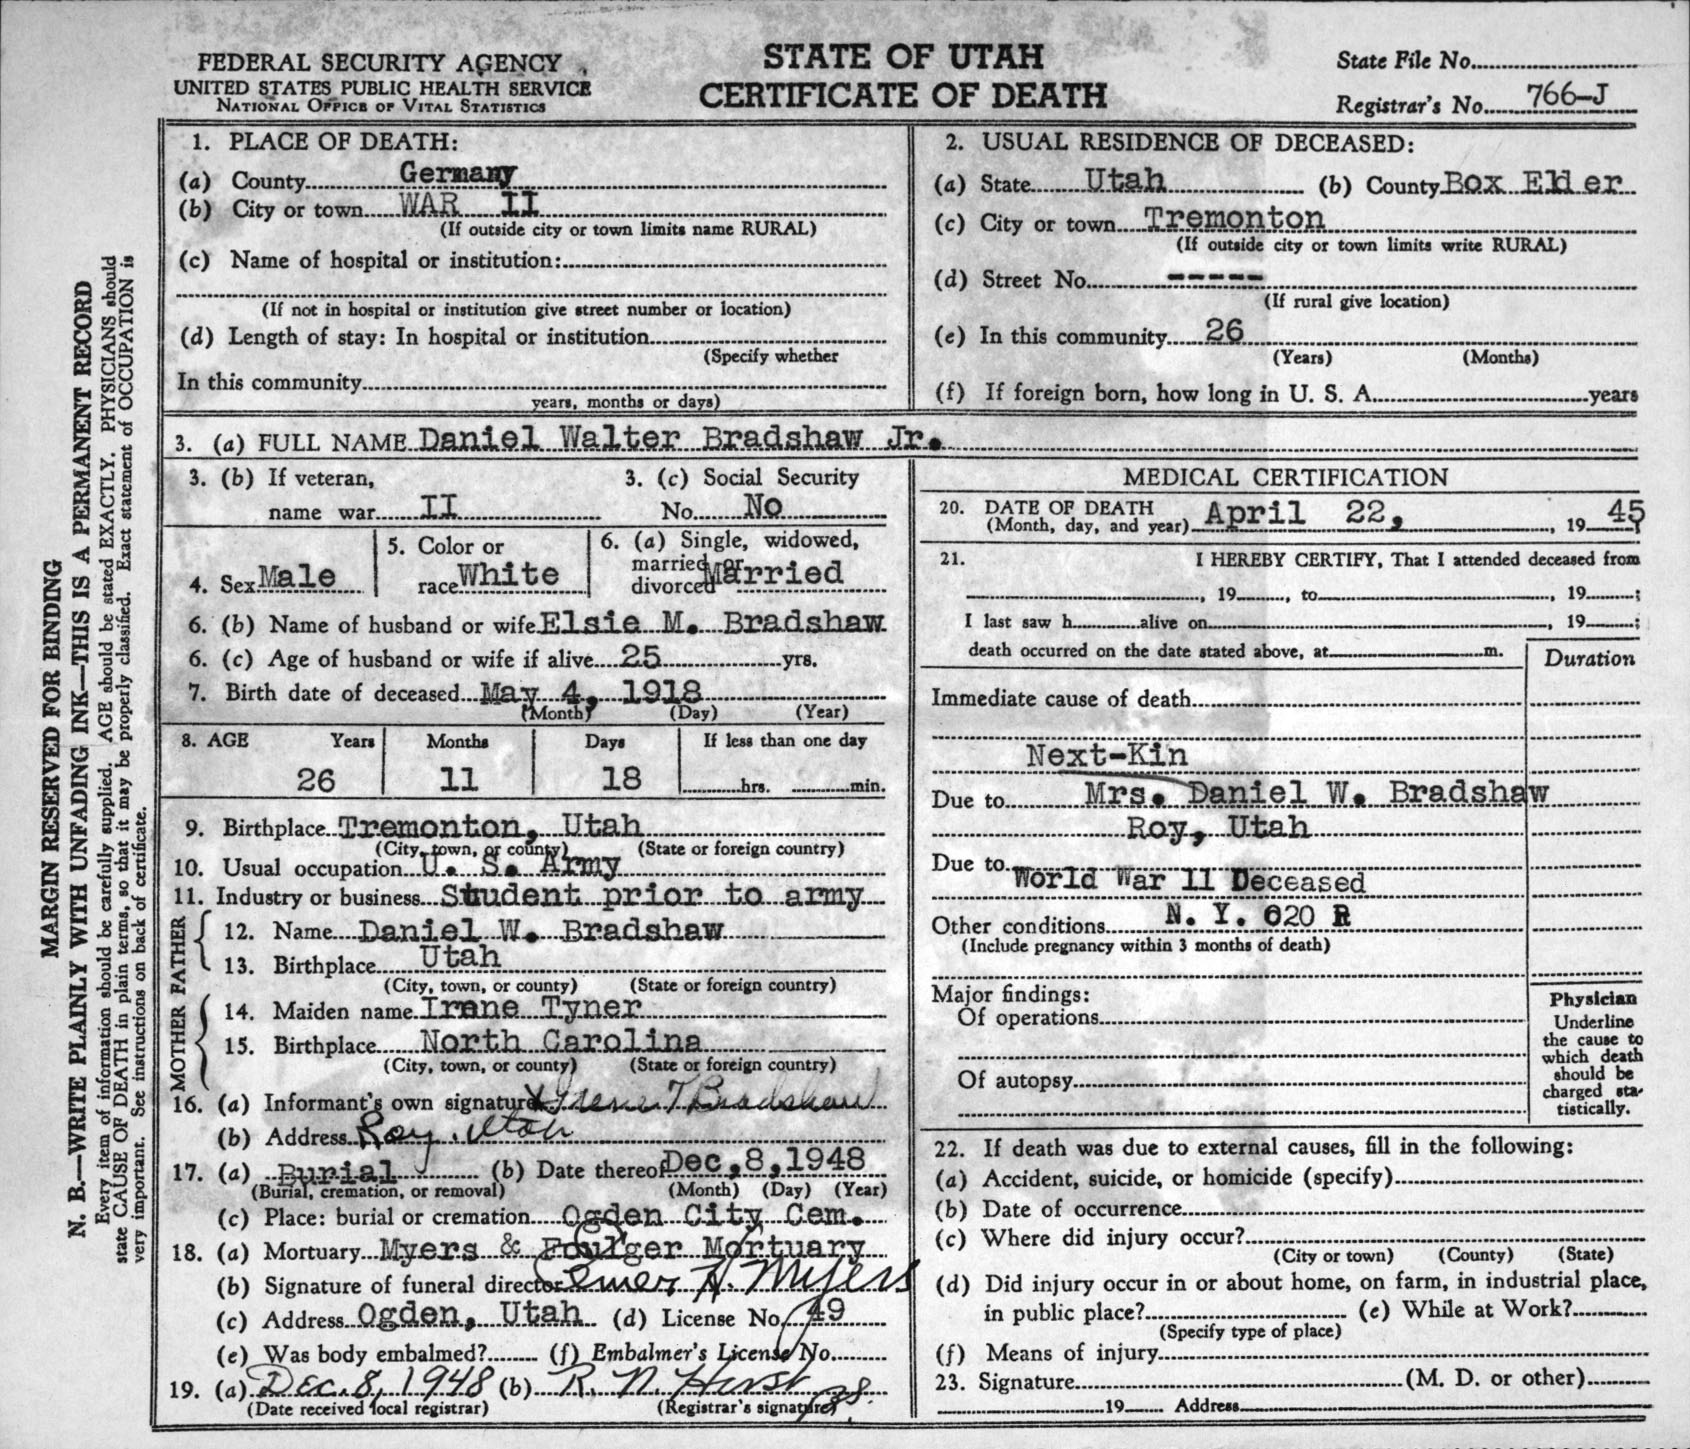 FEDERAL SECURITY AGENCY
UNITED STATES PUBLIC HEALTH SERVICE
NATIONAL OFFICE OF VITAL STATISTICS
STATE OF UTAH
CERTIFICATE OF DEATH
State File No.
Registrar's No. 766-J
MARGIN RESERVED FOR BINDING
N. B.—WRITE PLAINLY WITH UNFADING INK—THIS IS A PERMANENT RECORD
Every item of information should be carefully supplied. AGE should be stated EXACTLY. PHYSICIANS should
state CAUSE OF DEATH in plain terms, so that it may be properly classified. Exact statement of OCCUPATION is
very important. See instructions on back of certificate.
1. PLACE OF DEATH:
(a) County Germany
(b) City or town WAR II
(If outside city or town limits name RURAL)
(c) Name of hospital or institution:
(If not in hospital or institution give street number or location)
(d) Length of stay: In hospital or institution
(Specify whether
In this community
years, months or days)
2. USUAL RESIDENCE OF DECEASED:
(a) State Utah (b) County Box Elder
(c) City or town Tremonton
(If outside city or town limits write RURAL)
(d) Street No. -----
(If rural give location)
(e) In this community 26
(Years) (Months)
(f) If foreign born, how long in U. S. A. years
3. (a) FULL NAME Daniel Walter Bradshaw Jr.
3. (b) If veteran,
name war II
3. (c) Social Security
No. No
4. Sex Male
5. Color or
race White
6. (a) Single, widowed,
married or
divorced Married
6. (b) Name of husband or wife Elsie M. Bradshaw
6. (c) Age of husband or wife if alive 25 yrs.
7. Birth date of deceased May 4, 1918
(Month) (Day) (Year)
8. AGE Years Months Days If less than one day
26 11 18 hrs. min.
9. Birthplace Tremonton, Utah
(City, town, or county) (State or foreign country)
10. Usual occupation U. S. Army
11. Industry or business Student prior to army
FATHER
12. Name Daniel W. Bradshaw
13. Birthplace Utah
(City, town, or county) (State or foreign country)
MOTHER
14. Maiden name Irene Tyner
15. Birthplace North Carolina
(City, town, or county) (State or foreign country)
16. (a) Informant's own signature X Irene T Bradshaw
(b) Address Roy, Utah
17. (a) Burial (b) Date thereof Dec,8,1948
(Burial, cremation, or removal) (Month) (Day) (Year)
(c) Place: burial or cremation Ogden City Cem.
18. (a) Mortuary Myers & Foulger Mortuary
(b) Signature of funeral director Elmer H. Myers
(c) Address Ogden, Utah (d) License No. 49
(e) Was body embalmed? (f) Embalmer's License No.
19. (a) Dec. 8, 1948 (b) R. N. Hirst
(Date received local registrar) (Registrar's signature)
MEDICAL CERTIFICATION
20. DATE OF DEATH
(Month, day, and year) April 22, , 19 45
21. I HEREBY CERTIFY, That I attended deceased from
, 19 , to , 19 ;
I last saw h alive on , 19 ;
death occurred on the date stated above, at m.
Duration
Immediate cause of death
Next-Kin
Due to Mrs. Daniel W. Bradshaw
Roy, Utah
Due to World War II Deceased
Other conditions N. Y. 620 R
(Include pregnancy within 3 months of death)
Major findings:
Of operations
Of autopsy
Physician
Underline
the cause to
which death
should be
charged sta-
tistically.
22. If death was due to external causes, fill in the following:
(a) Accident, suicide, or homicide (specify)
(b) Date of occurrence
(c) Where did injury occur?
(City or town) (County) (State)
(d) Did injury occur in or about home, on farm, in industrial place,
in public place? (e) While at Work?
(Specify type of place)
(f) Means of injury
23. Signature (M. D. or other)
19 Address